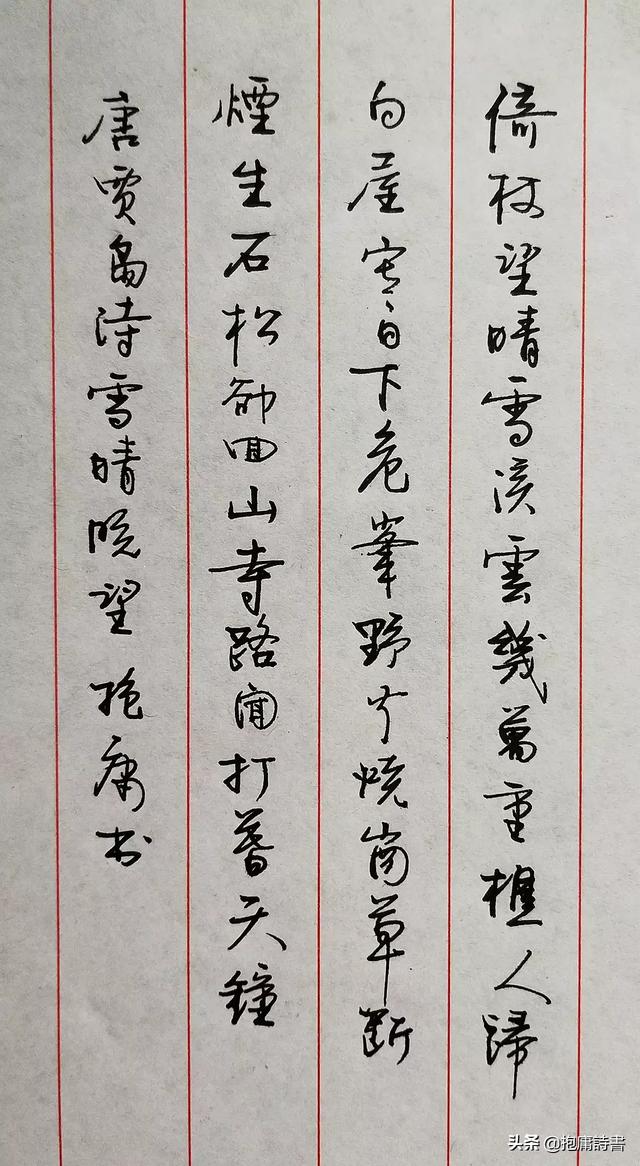 倚杖望晴雪溪雲幾萬重樵人歸
白屋寒日下危峯野火燒崗草斷
煙生石松卻回山寺路聞打暮天鐘
唐賈島詩雪晴晚望 抱庸书
头条 @抱庸詩書